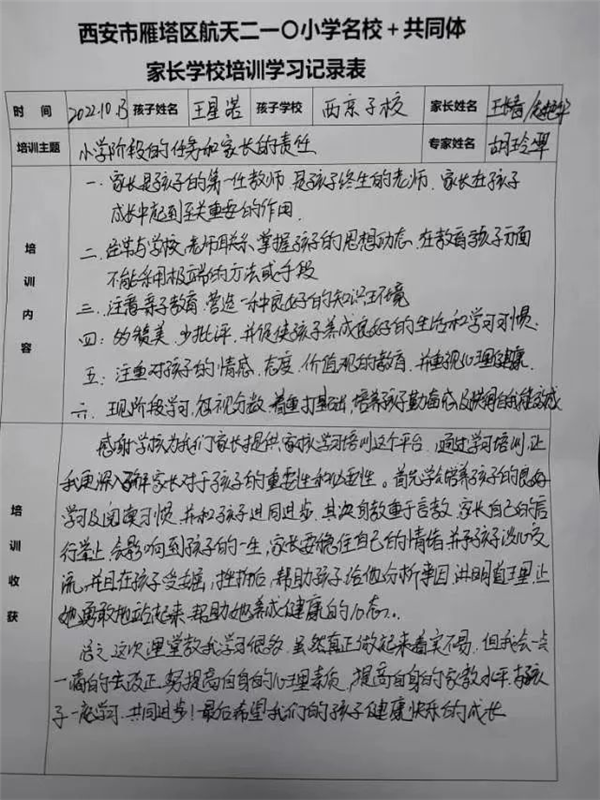 西安市雁塔区航天二一〇小学名校+共同体
家长学校培训学习记录表
时 间 2022.10.13 孩子姓名 王星诺 孩子学校 西京子校 家长姓名
培训主题 小学阶段的任务和家长的责任 专家姓名 胡玲翠
培训内容
一. 家长是孩子的第一任教师, 是孩子终生的老师. 家长在孩子
成长中起到至关重要的作用.
二. 经常与学校, 老师联系, 掌握孩子的思想动态, 在教育孩子方面
不能采用极端的方法或手段
三. 注意亲子教育, 营造一种良好的知识环境
四: 多赞美, 少批评, 并促使孩子养成良好的生活和学习习惯.
五: 注重对孩子的情感, 态度, 价值观的教育, 并重视心理健康.
六. 现阶段学习, 忽视分数, 着重打基础, 培养孩子勤奋
培训收获
感谢学校为我们家长提供家校学习培训这个平台, 通过学习培训, 让
我更深入了解家长对于孩子的重要性和必要性。首先学会培养孩子的良好
学习及阅读习惯, 并和孩子共同进步. 其次身教重于言教, 家长自己的言
行举止, 会影响到孩子的一生, 家长要稳住自己的情绪, 并予孩子谈心交
流, 并且在孩子受委屈, 挫折后, 帮助孩子给他分析事因, 讲明道理, 让
她勇敢地站起来, 帮助她养成健康的心态.
总之, 这次课堂教我学习很多, 虽然真正做起来着实不易, 但我会一点
一滴的去改正, 努提高自身的心理素质, 提高自身的家教水平, 与孩
子一起学习, 共同进步! 最后希望我们的孩子健康快乐的成长